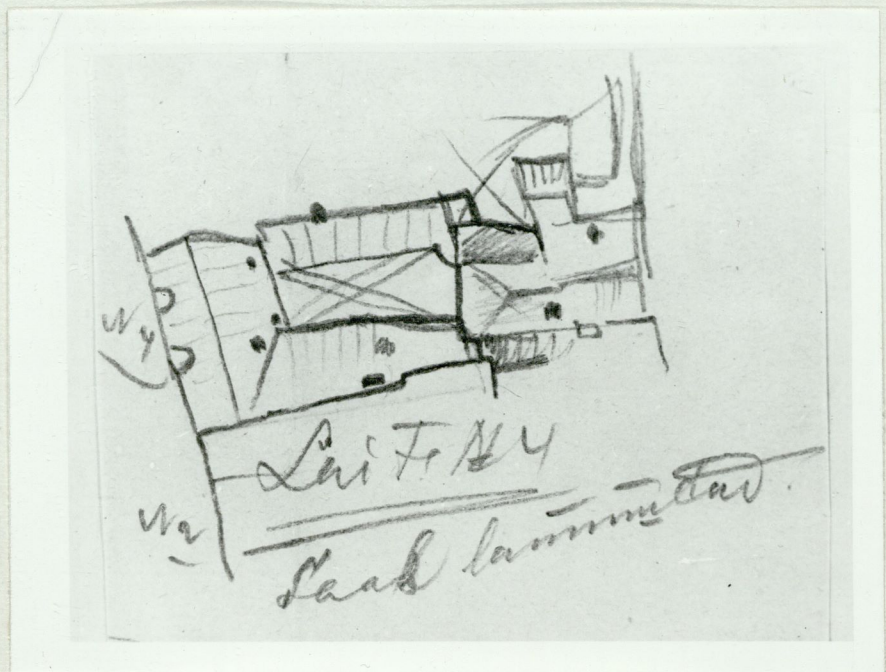 N 4
Lai T. N 4
N 2
Saab lammutud.